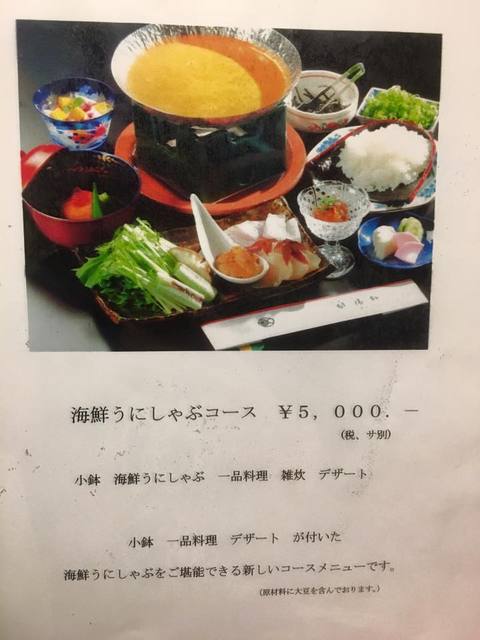 海鮮うにしゃぶコース　￥５，０００．－
(税、サ別)
小鉢　海鮮うにしゃぶ　一品料理　雑炊　デザート
小鉢　一品料理　デザート　が付いた
海鮮うにしゃぶをご堪能できる新しいコースメニューです。
(原材料に大豆を含んでおります。)